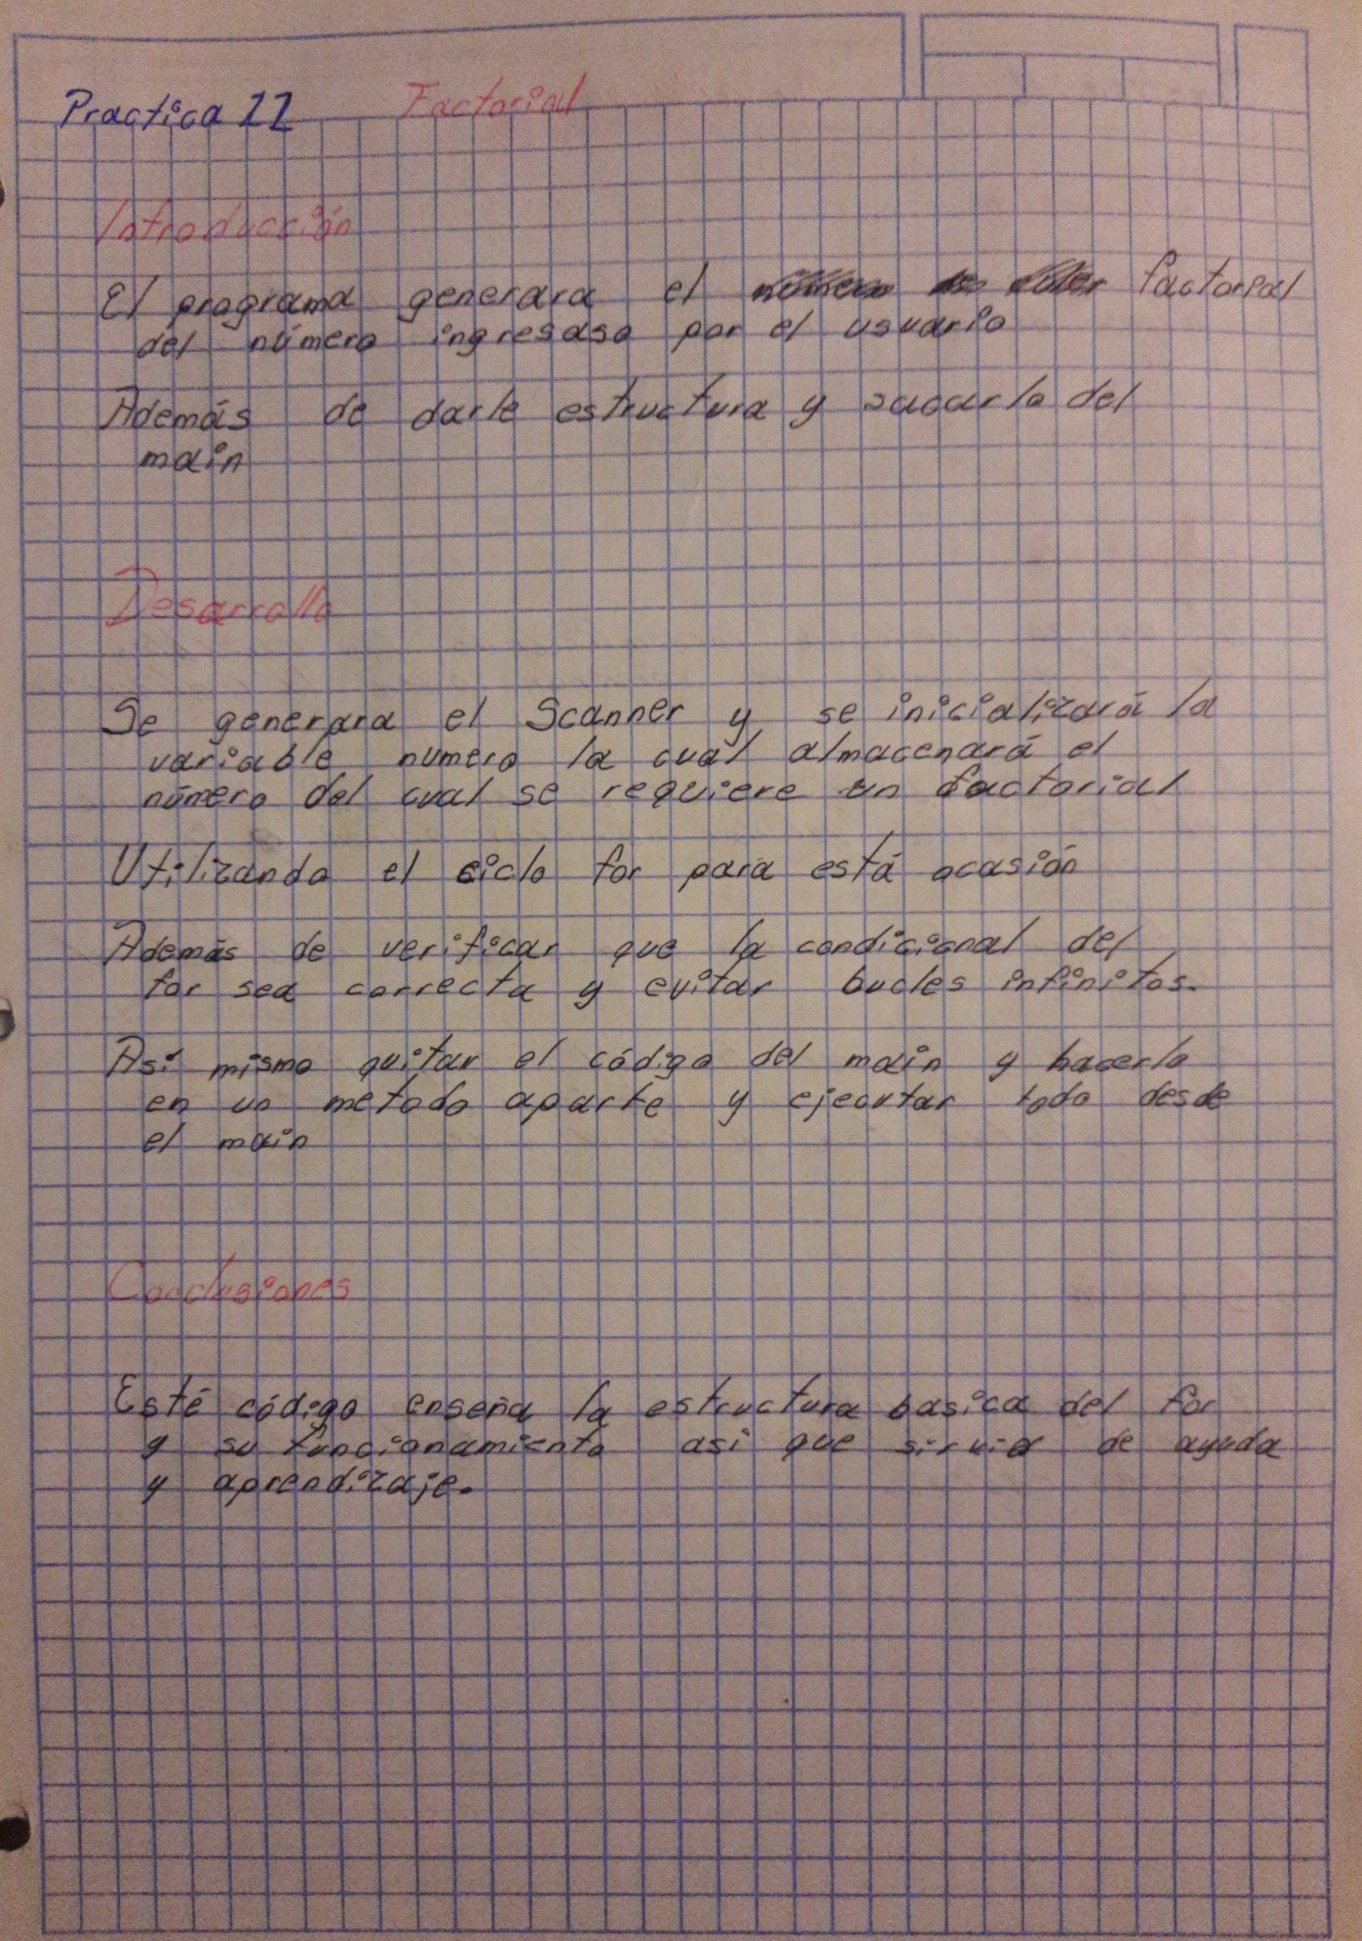 Practica 11 Factorial
Introducción
El programa generara el factorial
del número ingresaso por el usuario
Además de darle estructura y sacarlo del
main
Desarrollo
Se generara el Scanner y se inicializará la
variable numero la cual almacenará el
número del cual se requiere un factorial
Utilizando el ciclo for para está ocasión
Además de verificar que la condicional del
for sea correcta y evitar bucles infinitos.
Asi mismo quitar el código del main y hacerlo
en un metodo aparte y ejecutar todo desde
el main
Conclusiones
Esté código enseña la estructura basica del for
y su funcionamiento asi que de ayuda
y aprendizaje.